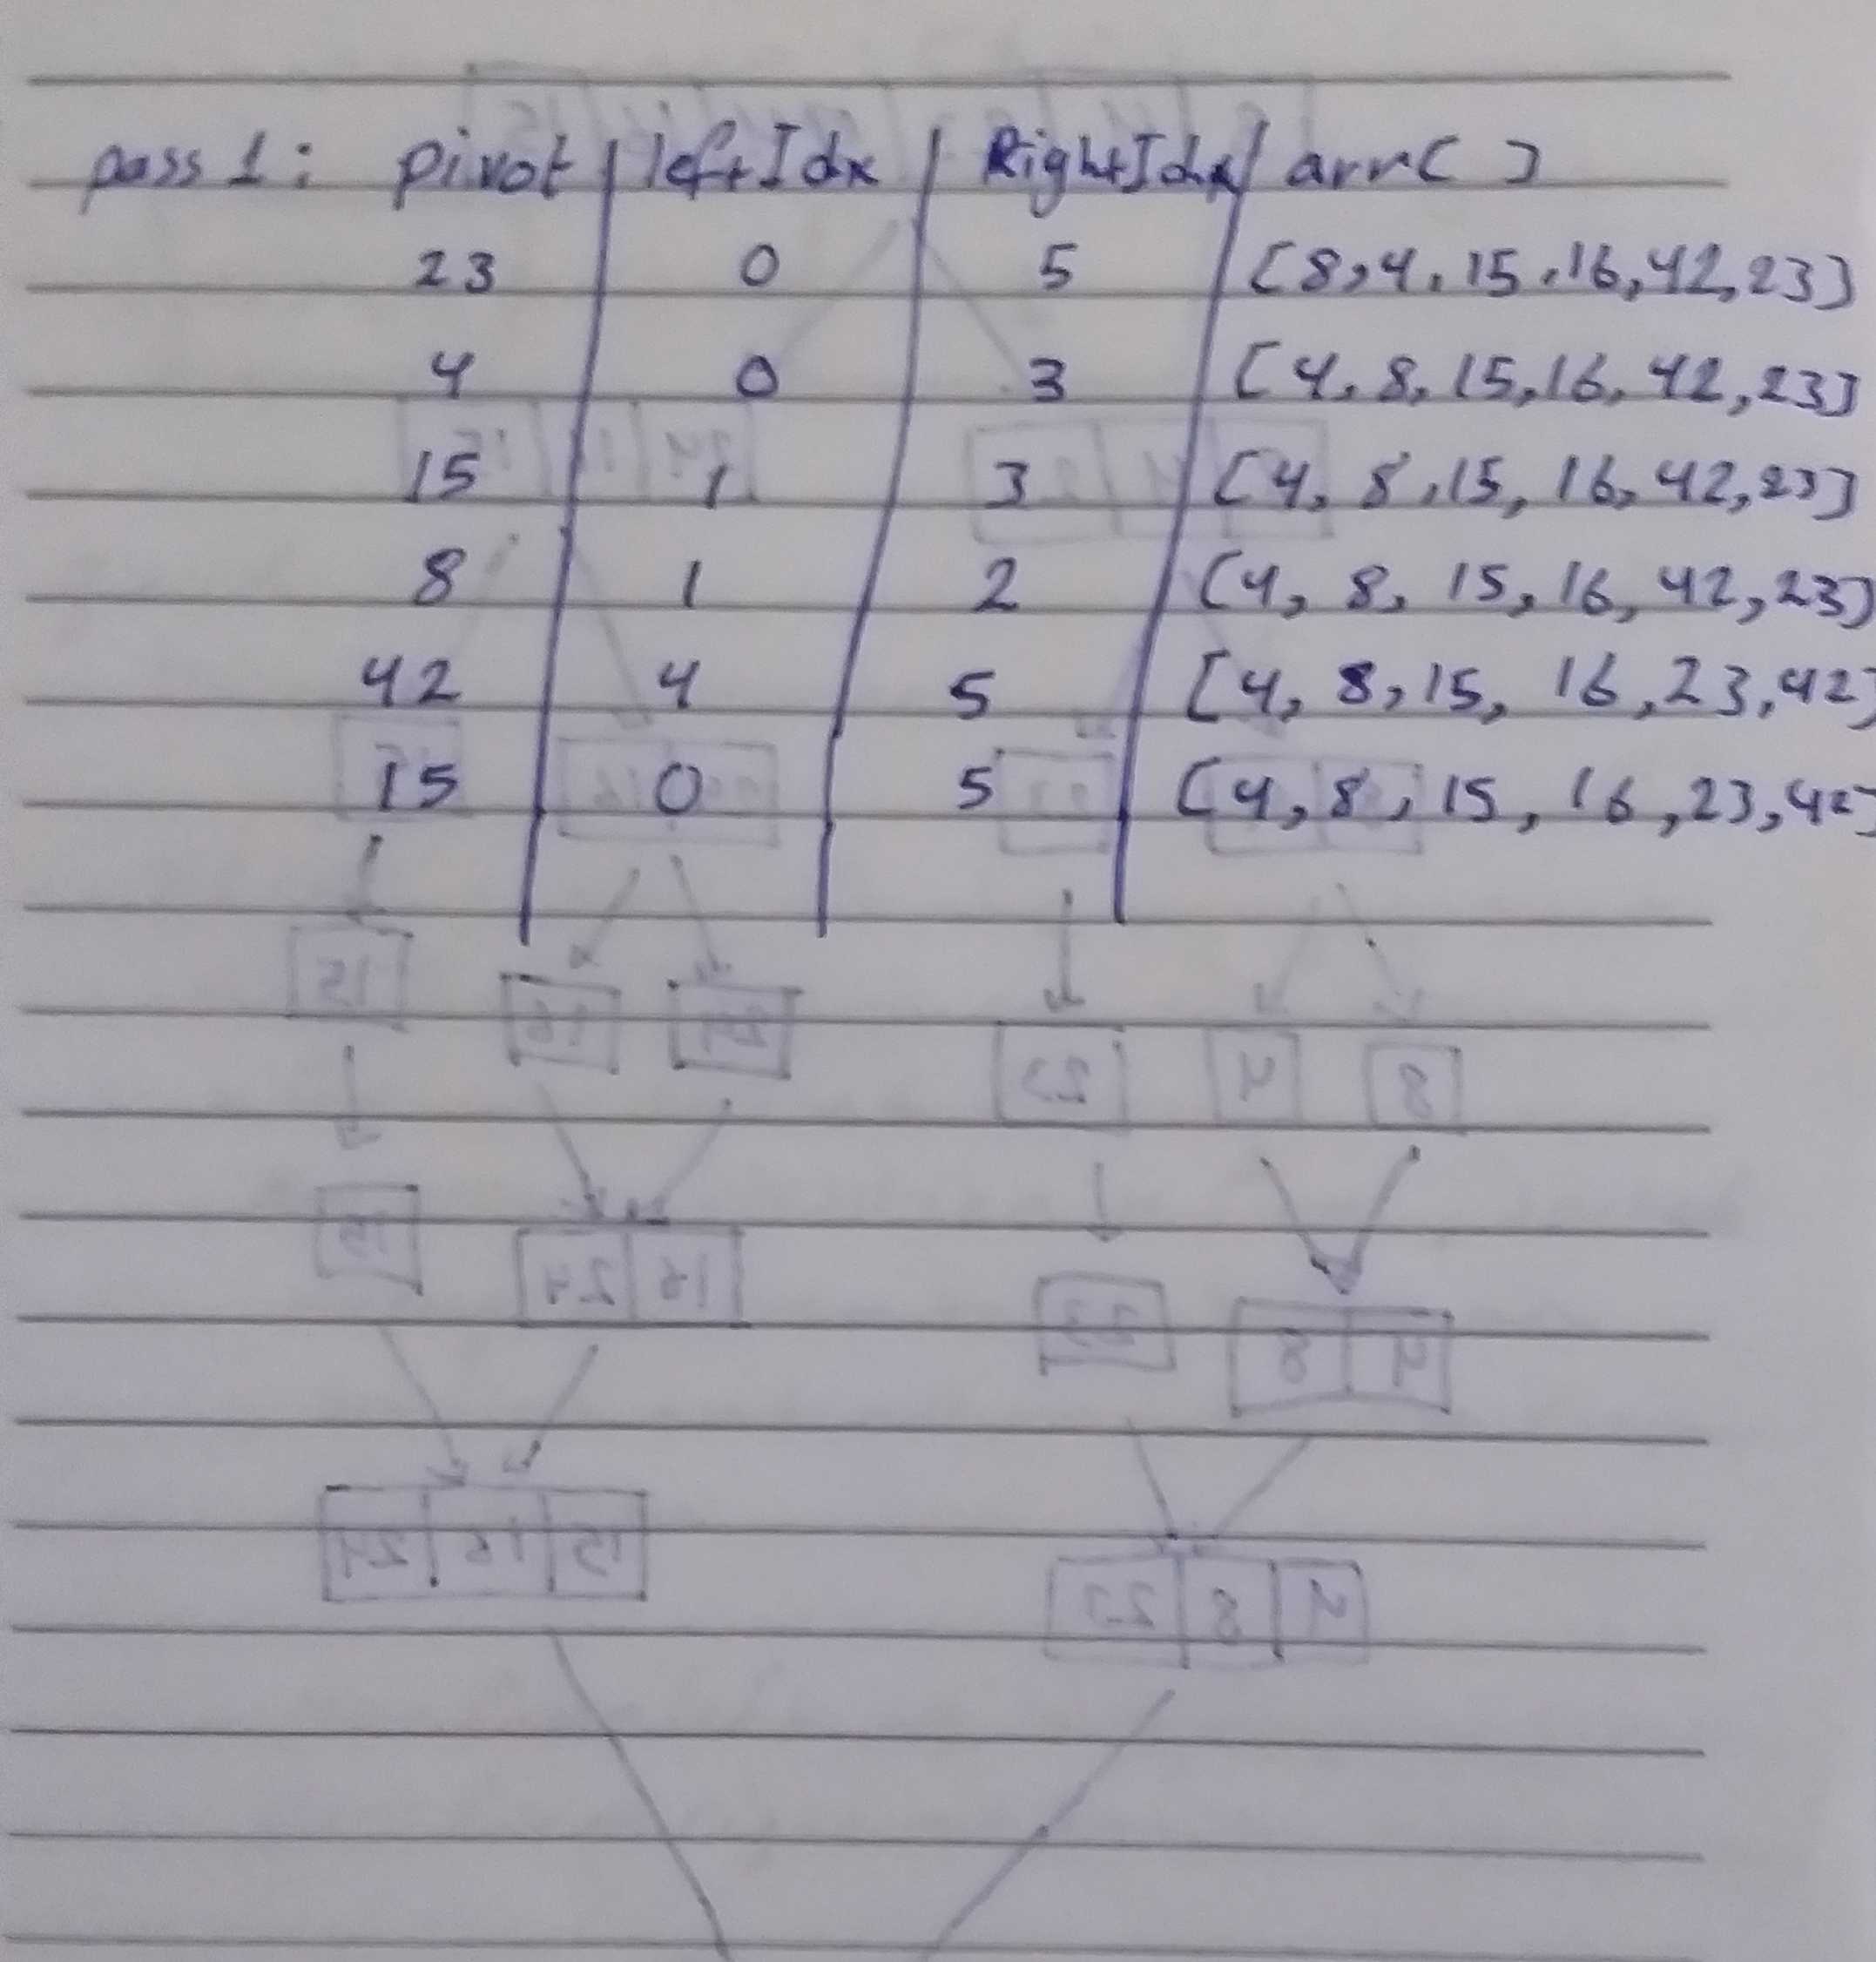 pass 1: pivot | leftIdx | RightIdx | arr[ ]
23 | 0 | 5 | [8,4,15,16,42,23]
4 | 0 | 3 | [4,8,15,16,42,23]
15 | 1 | 3 | [4,8,15,16,42,23]
8 | 1 | 2 | [4,8,15,16,42,23]
42 | 4 | 5 | [4,8,15,16,23,42]
15 | 0 | 5 | [4,8,15,16,23,42]